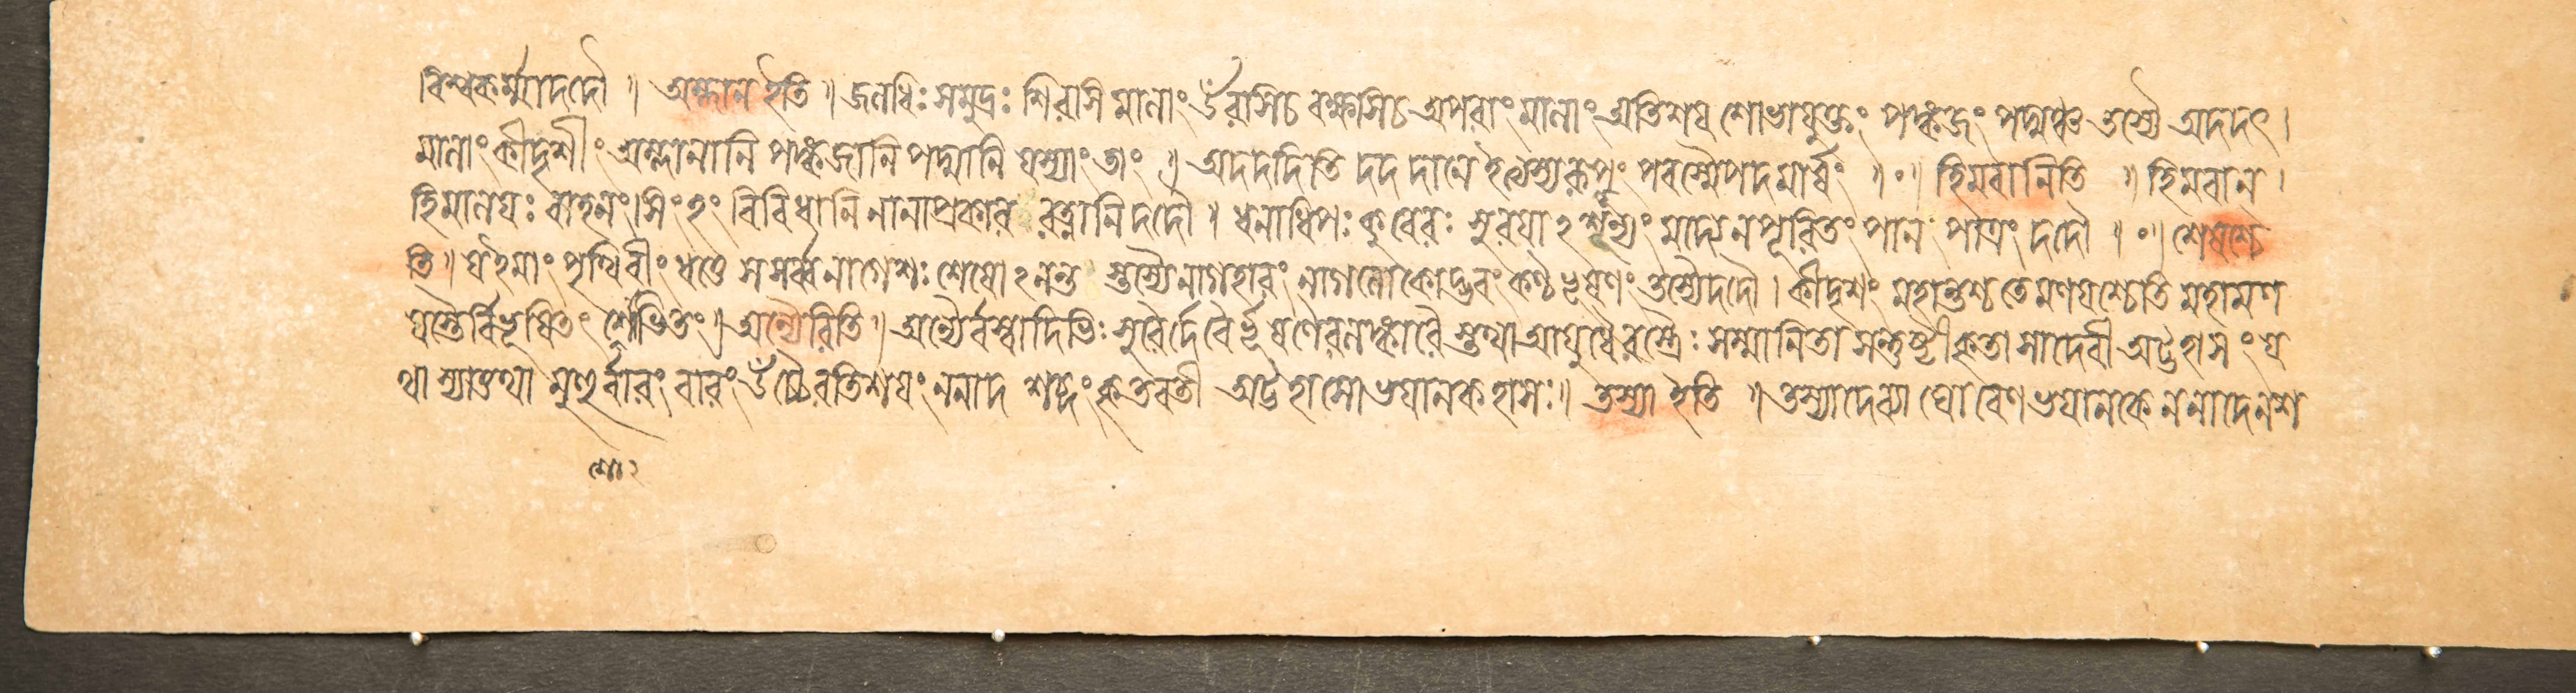 ।বিশ্বকর্ম্মাদদৌ ॥ অম্লান ইতি ॥ জলধিঃ সমুদ্রঃ শিরাসি মালাং উঁরাসিচ বক্ষসিচ অপরাং মালাং অতিশয় শোভাযুক্তং পঙ্কজং পদ্মঞ্চ তস্যৈ অদদৎ ।
মালাং কীদৃশীং অম্লানানি পঙ্কজানি পদ্মানি যস্যাং তাং ॥ অদদদিতি দদ দানে পরস্মৈপদমার্ষং ॥ ০ ॥ হিমবানিতি ॥ হিমবান ।
হিমালয়ঃ বাহনং সিংহং বিবিধানি নানাপ্রকার রত্নানি দদৌ ॥ ধনাধিপঃ কুবেরঃ সুরয়া ঽশূন্যং মদ্যেন পূরিতং পান পাত্রং দদৌ ॥ ০ ॥ শেষশ্চে
তি ॥ য ইমাং পৃথিবীং ধত্তে স সর্ব্বনাগেশঃ শেষো ঽনন্ত স্তস্যৈ নাগহারং নাগলোকোদ্ভবং কণ্ঠভূষণং তস্যৈ দদৌ । কীদৃশং মহান্তশ্চ তে মণয়শ্চেতি মহামণ
য়স্তৈর্বিভূষিতং শোভিতং ॥ অন্যৈরিতি ॥ অন্যৈর্বস্বাদিভিঃ সুরৈর্দেবৈর্ভূষণৈরলঙ্কারৈ স্তথা আয়ুধৈরস্ত্রৈঃ সম্মানিতা সন্তুষ্টীকৃতা সা দেবী অট্টহাসং য
থা স্যাত্তথা মুহুর্বারং বারং উঁচ্চৈরতিশয়ং ননাদ শব্দং কৃতবতী অট্টহাসো ভয়ানক হাসঃ ॥ তস্যা ইতি ॥ তস্যা দেব্যা ঘোরেণ ভয়ানকেন নাদেন শ
শো ২